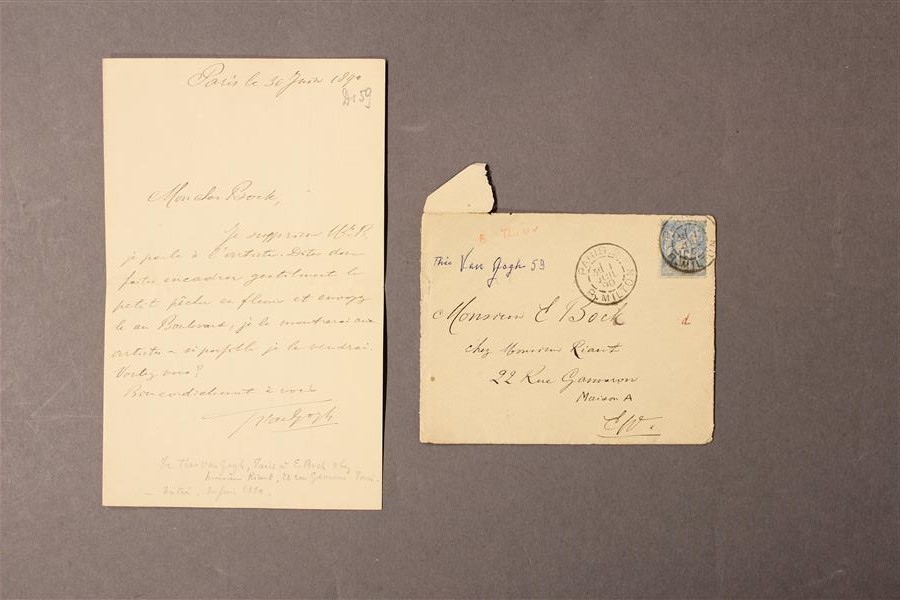 Paris le 30 Juin 1890
59
Mon cher Bock,
Je suppose
je parle à l'artiste. Dites donc
faites encadrer gentiment le
petit pêcher en fleurs et envoyez
le au Boulevard, je le montrerai aux
artistes & si possible je le vendrai.
Voulez vous?
Bien cordialement à vous
TvanGogh
Théo Van Gogh, Paris à E. Boch chez
Monsieur Riant, 22 rue Ganneron Paris
1890.
Théo Van Gogh 59
PARIS
R. MILTON
Monsieur E Bock
chez Monsieur Riant
22 Rue Ganneron
Maison A
E/V.